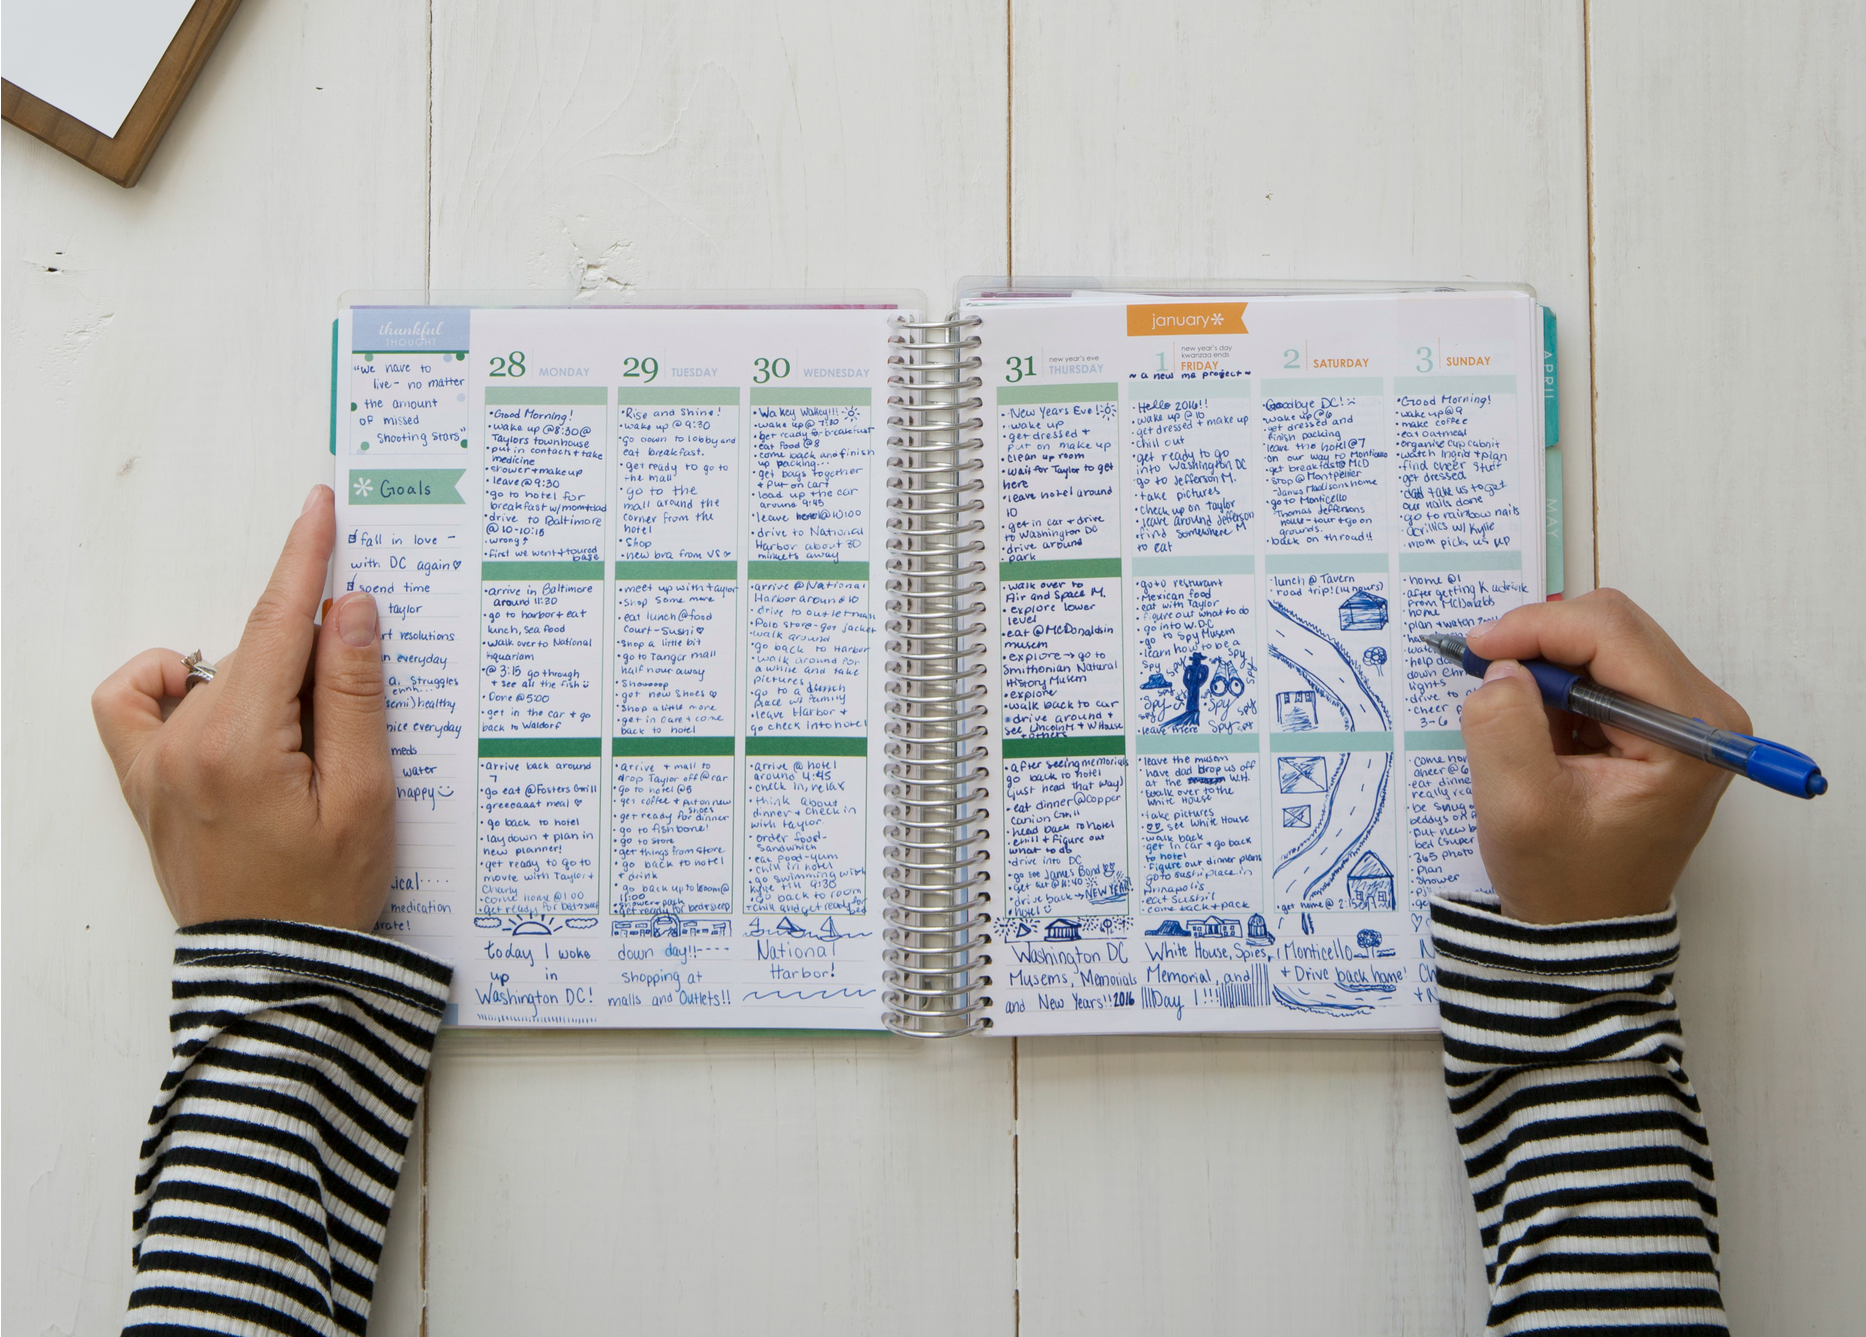 thankful
THOUGHT
"we have to
live - no matter
the amount
of missed
shooting stars"
Goals
fall in love -
with DC again♡
spend time
taylor
resolutions
everyday
a. struggles
ehhh...
semi) healthy
nice everyday
meds
water
happy
ical....
medication
28 MONDAY
•Good Morning!
•wake up @8:30@
Taylors townhouse
•put in contacts+take
medicine
•shower+makeup
•leave@9:30
•go to hotel for
breakfast w/mom+dad
•drive to Baltimore
@10-10:15
•wrong↑
•first we went+toured
base
•arrive in Baltimore
around 11:30
•go to harbor+eat
lunch, sea food
•walk over to National
Aquariam
•@ 3:15 go through
+ see all the fish
•Done @5:00
•get in the car + go
back to Waldorf
•arrive back around
7
•go eat @Fosters Grill
•greeeaaat meal ♡
•go back to hotel
•lay down + plan in
new planner!
•get ready to go to
movie with Taylor +
Charly
•come home @1:00
•get ready for bed+sleep
today I woke
up in
Washington DC!
29 TUESDAY
•Rise and shine!
•wake up @ 9:30
•go down to lobby and
eat breakfast.
•get ready to go to
the mall
•go to the
mall around the
corner from the
hotel
•Shop
•new bra from VS♡
•meet up with taylor
•shop some more
•eat lunch @food
court-Sushi♡
•shop a little bit
•go to Tanger mall
half hour away
•Shooooop
•got new shoes ♡
•shop a little more
•get in car + come
back to hotel
•arrive + mall to
drop Taylor off @car
•go to hotel @5
•get coffee + put on new
shoes
•get ready for dinner
•go to fishbone!
•go to store
•get things from store
•go back to hotel
+ drink
•go back up to room@
11:00
•shower+pack
•get ready for bed+sleep
down day!!----
shopping at
malls and Outlets!!
30 WEDNESDAY
•Wakey Wakey!!!
•wake up@ 7:30
•get ready & breakfast
•eat food @8
•come back and finish
up packing...
•get bags together
+ put on cart
•load up the car
around 9:45
•leave @10:00
•drive to National
Harbor about 30
minutes away
•arrive @National
Harbor around 10
•drive to outlet mall
•Polo store-got jacket
•walk around
•go back to Harbor
•walk around for
a while and take
pictures
•go to a lunch
place w/ family
•leave Harbor +
go check into hotel
•arrive @ hotel
around 4:45
•check in, relax
•think about
dinner + check in
with taylor
•order food-
sandwhich
•eat food-yum
•chill in hotel
•go swimming with
kylie till 9:30
•go back to room
•chill and get ready for
bed
National
Harbor!
31 new year's eve
THURSDAY
•New Years Eve!
•wake up
•get dressed +
put on make up
•clean up room
•wait for Taylor to get
here
•leave hotel around
10
•get in car + drive
to Washington DC
•drive around
park
•walk over to
Air and Space M.
•explore lower
level
•eat @McDonalds in
musem
•explore → go to
Smithonian Natural
History Musem
•explore
•walk back to car
•drive around +
see Lincoln M + W House
+ others
•after seeing memorials
go back to hotel
(just head that way)
•eat dinner @Copper
Canion Grill
•head back to hotel
•chill + figure out
what to do
•drive into DC
•go see James Bond
•get out @11:40
•drive back → NEW YEAR!
•hotel
Washington DC
Musems, Memorials
and New Years!! 2016
january*
1 new year's day
kwanzaa ends
FRIDAY
~ a new me project ~
•Hello 2016!!
•wake up @10
•get dressed + make up
•chill out
•get ready to go
into Washington DC
•go to Jefferson M.
•take pictures
•check up on taylor
•leave around Jefferson
M
•find somewhere
to eat
•go to resturant
Mexican food
•eat with Taylor
•figure out what to do
•go into W.DC
•go to Spy Musem
•learn how to be a
Spy Spy Spy
Spy
Spy Spy
Spy Spy Spy
•leave there
•leave the musem
•have dad drop us off
at the W.H.
•walk over to the
White House
•take pictures
•♡♡ see White House
•walk back
•get in car + go back
to hotel
•figure out dinner plans
•go to sushi place in
Annapolis
•eat Sushi!
•come back + pack
White House, Spies,
Memorial, and
Day 1!!!
2 SATURDAY
•Goodbye DC!
•wake up @6
•get dressed and
finish packing
•leave the hotel @7
•on our way to Monticello
•get breakfast@ McD
•stop @ Montpelier
-James Madisons home
•go to Monticello
Thomas Jeffersons
house-tour + go on
grounds.
•back on th road!!
•lunch @ Tavern
•road trip! (14 hours)
•get home @ 2:15
Monticello
+ Drive back home!
3 SUNDAY
•Good Morning!
•wake up @9
•make coffee
•eat oatmeal
•organise cup cabnit
•watch Ingrid + plan
•find cheer stuff
•get dressed
•dad take us to get
our nails done
•go to rainbow nails
•acrillics w/ Kylie
•mom picks us up
•home @1
•after getting
from McDonalds
•home
•plan + watch
•help
down
lights
•drive to
•cheer
3-6
cheer @6
•eat dinne
•be snug
•put new b
bed (super
•365 photo
•plan
•shower
APRIL
MAY